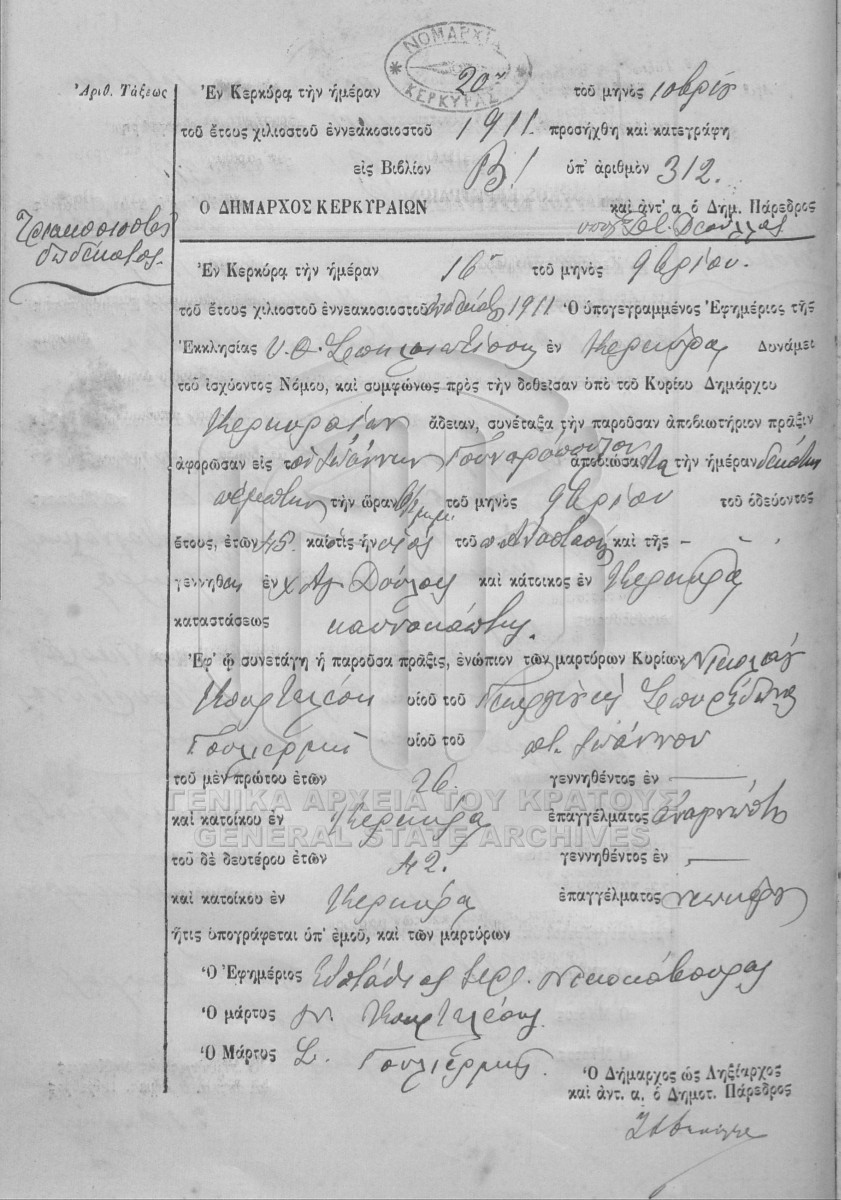 ΝΟΜΑΡΧΙΑ
ΚΕΡΚΥΡΑΣ
Ἀριθ. Τάξεως
Ἐν Κερκύρᾳ τὴν ἡμέραν 20 τοῦ μηνὸς
τοῦ ἔτους χιλιοστοῦ ἐννεακοσιοστοῦ 1911 προσήχθη καὶ κατεγράφη
εἰς Βιβλίον Β! ὑπ' ἀριθμὸν 312.
Ο ΔΗΜΑΡΧΟΣ ΚΕΡΚΥΡΑΙΩΝ καὶ ἀντ' α. ὁ Δημ. Πάρεδρος
Τριακοσιοστος
δωδέκατος.
Ἐν Κερκύρᾳ τὴν ἡμέραν 16 τοῦ μηνὸς 9βρίου.
τοῦ ἔτους χιλιοστοῦ ἐννεακοσιοστοῦ 1911 Ὁ ὑπογεγραμμένος Ἐφημέριος τῆς
Ἐκκλησίας Υ. Θ. ἐν Κερκύρᾳ Δυνάμει
τοῦ ἰσχύοντος Νόμου, καὶ συμφώνως πρὸς τὴν δοθεῖσαν ὑπὸ τοῦ Κυρίου Δημάρχου
Κερκυραίων ἄδειαν, συνέταξα τὴν παροῦσαν ἀποβιωτήριον πρᾶξιν
ἀφορῶσαν εἰς τὸν Ἰωάννην Γουναρόπουλον ἀποβιώσαντα τὴν ἡμέραν δεκάτην
πέμπτην τὴν ὥραν τοῦ μηνὸς 9βρίου τοῦ ὁδεύοντος
ἔτους, ἐτῶν 45. καὶ ὅστις ἦν υἱὸς τοῦ καὶ τῆς - - -
γεννηθεὶς ἐν χ. Ἁγ. Δούλους καὶ κάτοικος ἐν Κερκύρᾳ
καταστάσεως καπνοκόπτης.
Ἐφ' ᾧ συνετάγη ἡ παροῦσα πρᾶξις, ἐνώπιον τῶν μαρτύρων Κυρίων Νικολάου
Κουρταλέση υἱοῦ τοῦ Γεωργίου καὶ Σπυρίδωνα
Γουλιέρμης υἱοῦ τοῦ ποτ. Ἰωάννου
τοῦ μὲν πρώτου ἐτῶν 26. γεννηθέντος ἐν
καὶ κατοίκου ἐν Κερκύρᾳ ἐπαγγέλματος ἀναγνώστης
τοῦ δὲ δευτέρου ἐτῶν 42. γεννηθέντος ἐν
καὶ κατοίκου ἐν Κερκύρᾳ ἐπαγγέλματος
ἥτις ὑπογράφεται ὑπ' ἐμοῦ, καὶ τῶν μαρτύρων
Ὁ Ἐφημέριος Εὐστάθιος ἱερ.
Ὁ μάρτυς Ν. Κουρταλέσης
Ὁ Μάρτυς Σ. Γουλιέρμης.
Ὁ Δήμαρχος ὡς Ληξίαρχος
καὶ ἀντ. α. ὁ Δημοτ. Πάρεδρος
ΓΕΝΙΚΑ ΑΡΧΕΙΑ ΤΟΥ ΚΡΑΤΟΥΣ
GENERAL STATE ARCHIVES